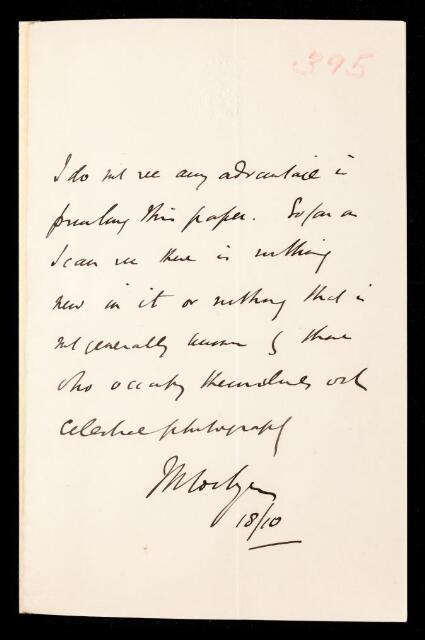 395
I do not see any advantage in
printing this paper. So far as
I can see there is nothing
new in it or nothing that is
not generally known by those
who occupy themselves with
celestial photography
18/10